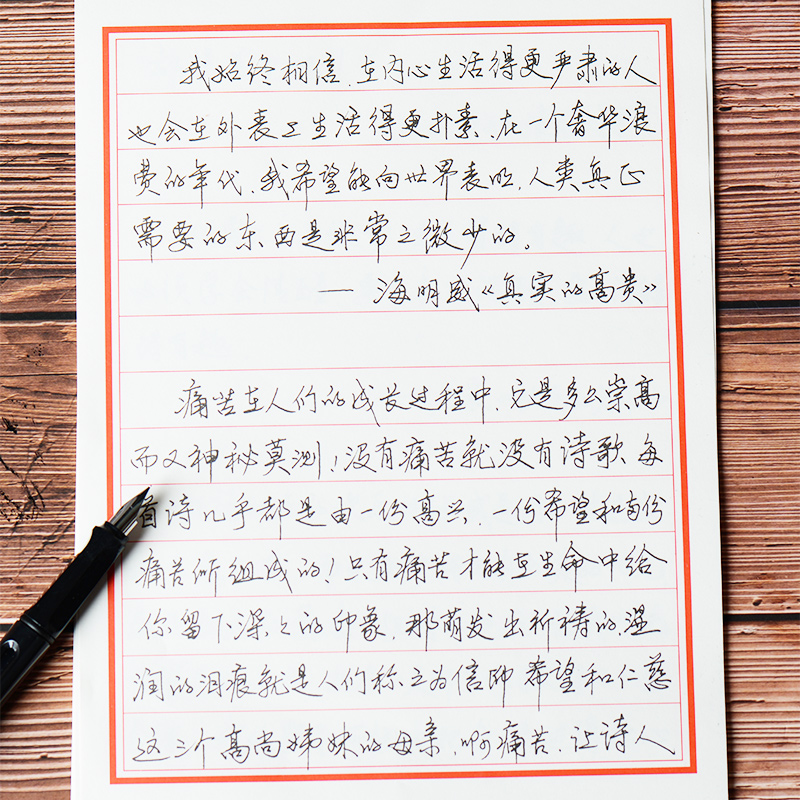 我始终相信,在内心生活得更严肃的人
也会在外表上生活得更朴素,在一个奢华浪
费的年代,我希望能向世界表明,人类真正
需要的东西是非常之微少的。
— 海明威《真实的高贵》
痛苦在人们的成长过程中,它是多么崇高
而又神秘莫测!没有痛苦就没有诗歌,每
首诗几乎都是由一份高兴,一份希望和两份
痛苦所组成的!只有痛苦才能在生命中给
你留下深深的印象,那萌发出祈祷的,湿
润的泪痕就是人们称之为信仰 希望和仁慈
这三个高尚姊妹的母亲,啊痛苦,让诗人